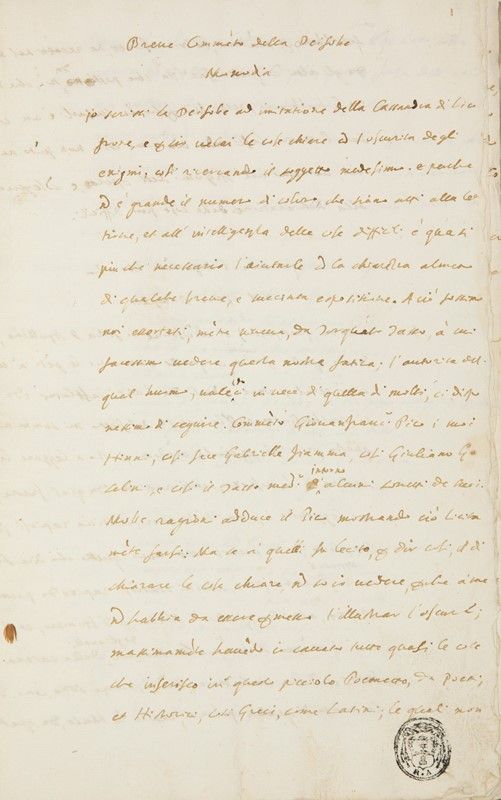 Breve Commēto della Deifobe
Monodia
Jo scrissi la Deifobe ad imitatione della Cassandra di Lico
frone, e velai le cose chiare cō l'oscurità degli
enigmi, cosi ricercando il soggetto medesimo. e perche
nō e grande il numero di coloro, che siano atti alla let
tione, et all'intelligenza delle cose difficili é quasi
piu che necessario l'aiutarle cō la chiarezza almeno
di qualche breve, e succinta espositione. A ciò fossimo
noi essortati, mētre viveva, da Torquato Tasso, à cui
facessimo vedere questa nostra fatica; l'autorità del
qual huomo, valēdoci in vece di quella di molti, ci disp
nessimo di seguire. Commētò Giovanfranc.º Pico i suoi
Hinni, cosi fece Gabrielle fiamma, cosi Giuliano Go
selini, e cosi il Tasso med.º intorno alcuni sonetti de suoi.
Molte ragioni adduce il Pico mostrando ciò lecita
mēte farsi. Ma se à quelli fu lecito, dir cosi, il di
chiarare le cose chiare, nō so io vedere, che à me
nō habbia da essere permesso l'illustrar l'oscure;
massimamēte havēdo io cavato tutte quasi le cose
che inserisco in questo piccolo Poemetto, da Poeti,
et Historici, cosi Greci, come Latini; le quali non